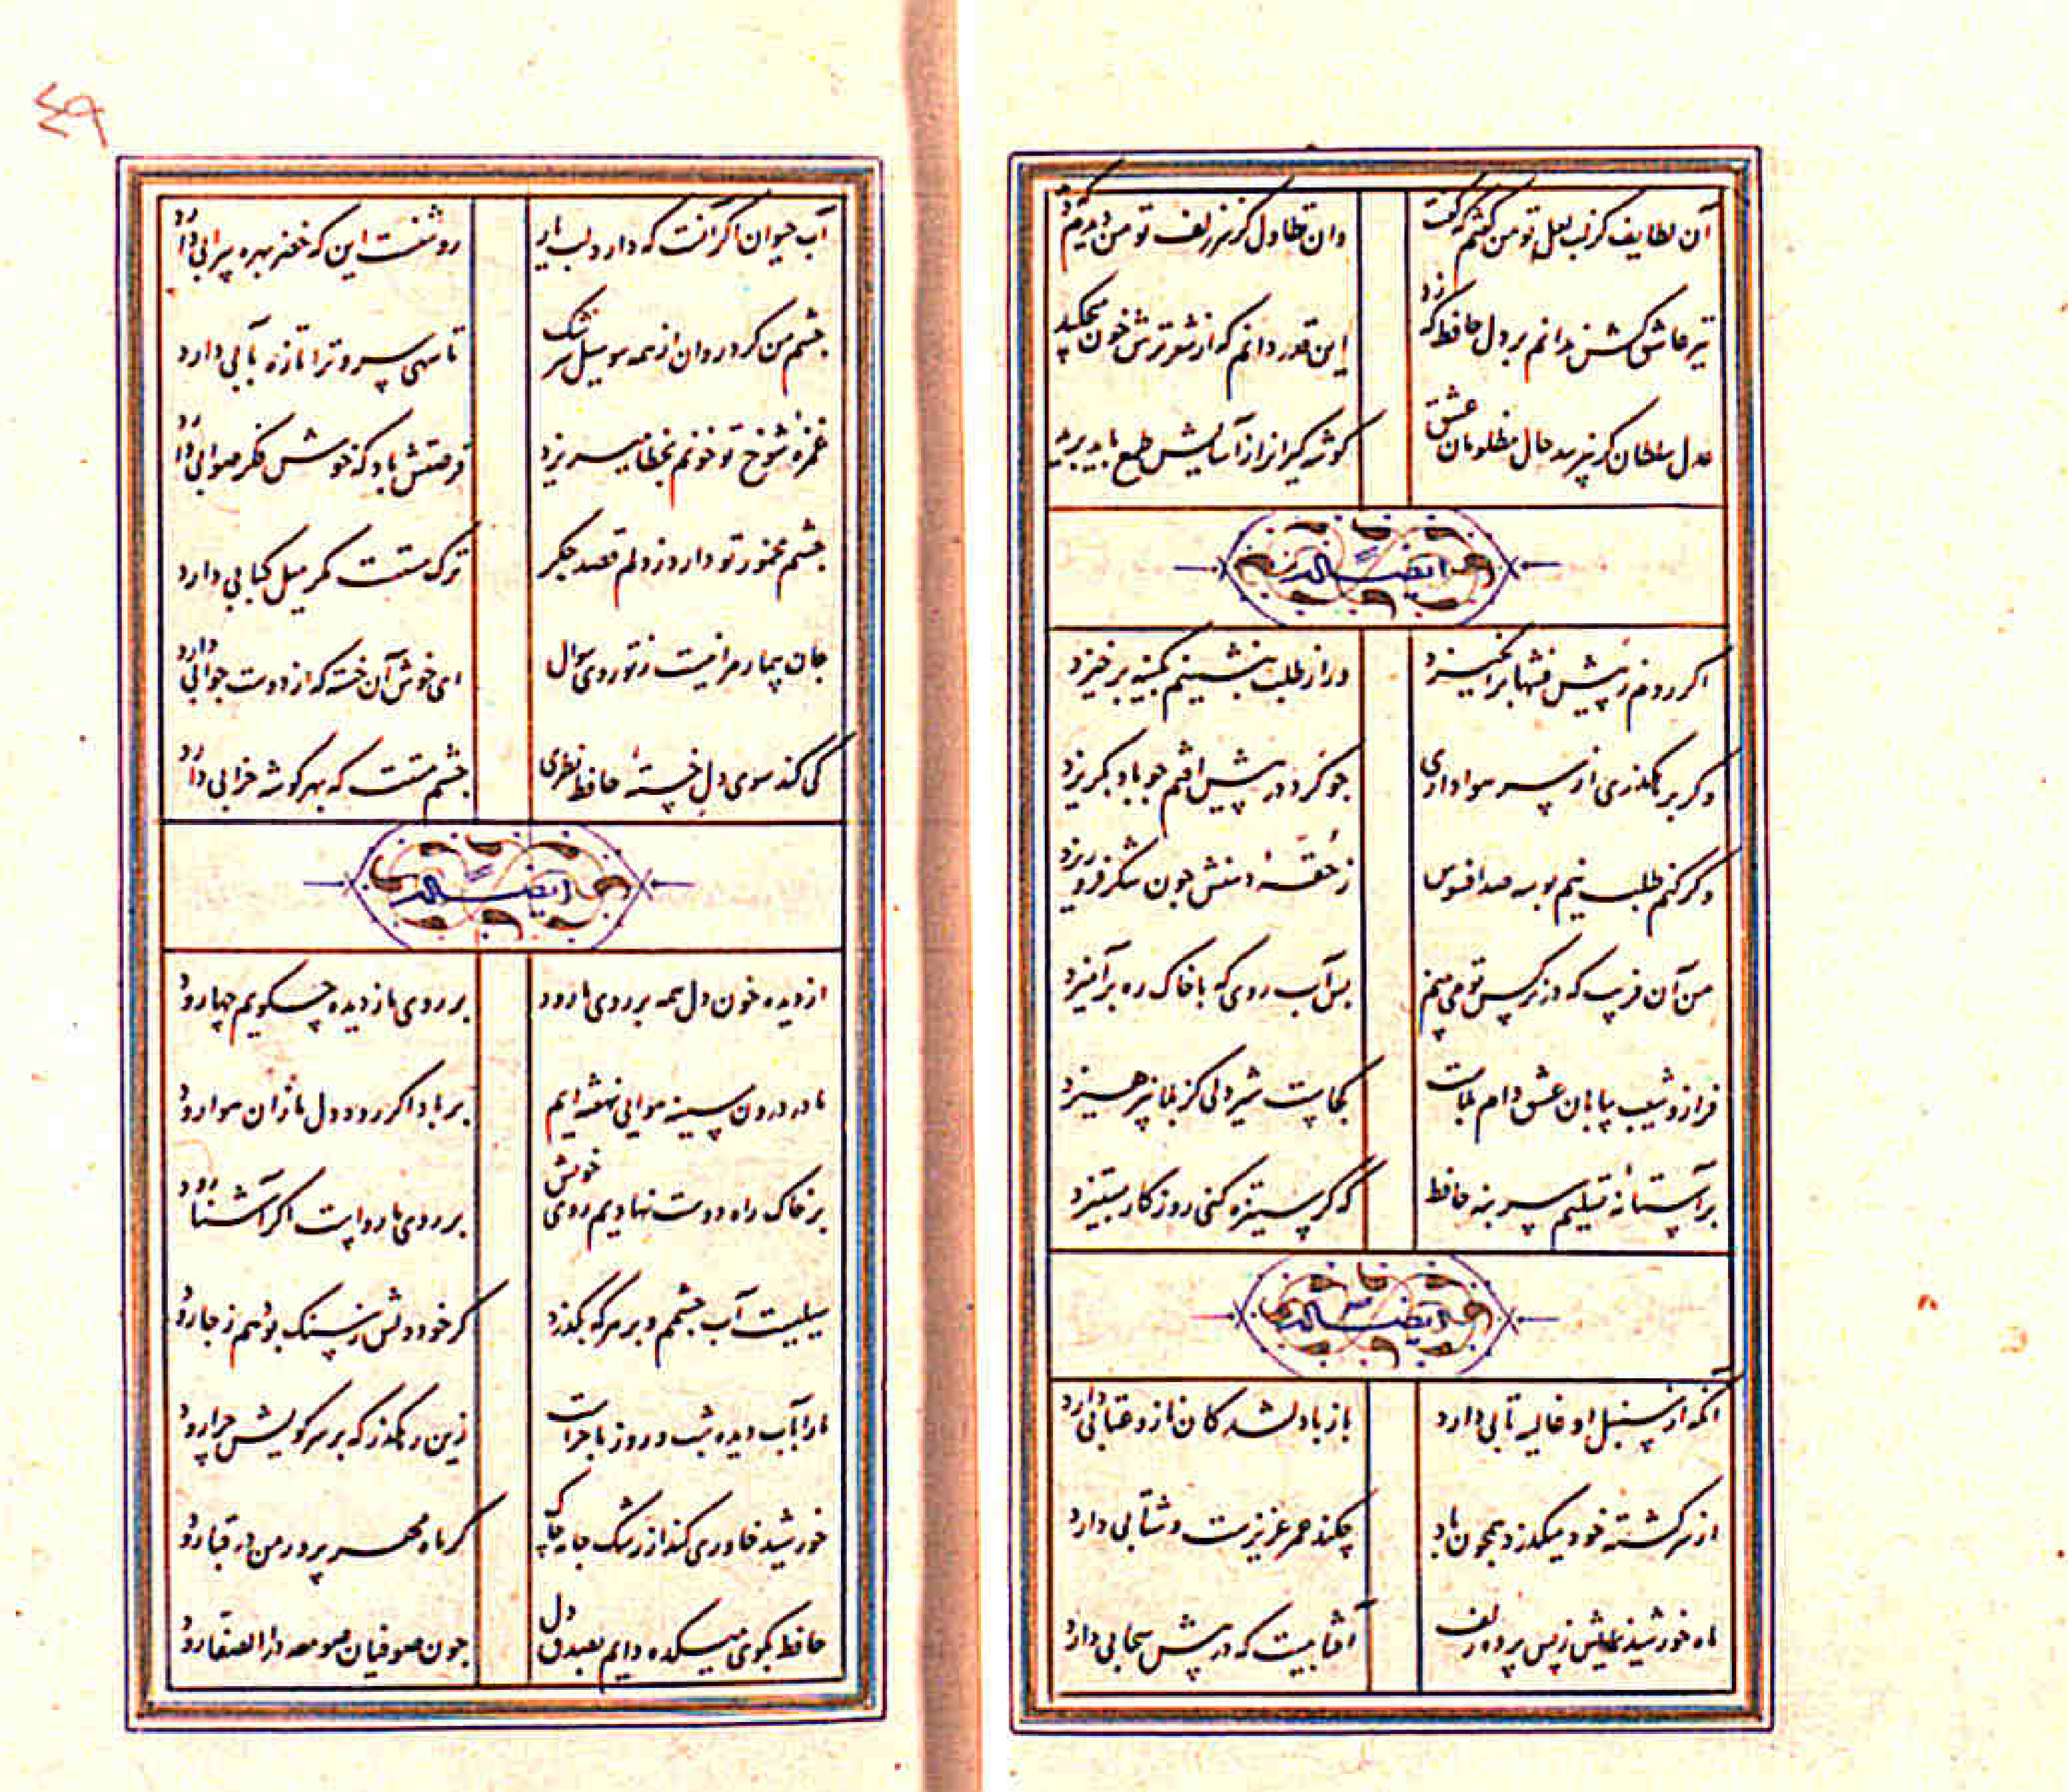 آن لطایف کز لب لعل تو من گفتم که گفت
وان تطاول کز سر زلف تو من دیدم که دید
تیر عاشق کش ندانم بر دل حافظ که زد
این قدر دانم که از شعر ترش خون میچکید
عدل سلطان گر نپرسد حال مظلومان عشق
گوشه گیرانرا ز آسایش طمع باید برید
ایضاً له
اگر روم ز پیش فتنها برانگیزد
ور از طلب بنشینم بکینه برخیزد
وگر برهگذری از سر هواداری
چو گرد در پیش افتم چو باد بگریزد
وگر کنم طلب نیم بوسه صد افسوس
ز حقهٔ دهنش چون شکر فرو ریزد
من آن فریب که در نرگس تو می بینم
بس آب روی که با خاک ره برآمیزد
فراز و شیب بیابان عشق دام بلاست
کجاست شیر دلی کز بلا نپرهیزد
بر آستانهٔ تسلیم سر بنه حافظ
که گر ستیزه کنی روزگار بستیزد
ایضاً له
آنکه از سنبل او غالیه تابی دارد
باز با دلشدگان ناز و عتابی دارد
از سر کشته خود میگذرد همچون باد
چکند عمر عزیزست و شتابی دارد
ماه خورشید نمایش ز پس پرده زلف
آفتابیست که در پیش سحابی دارد
٤٩
آب حیوان اگر آنست که دارد لب یار
روشنست این که خضر بهره سرابی دارد
چشم من کرد روان از همه سو سیل سرشک
تا سهی سرو ترا تازه بآبی دارد
غمزهٔ شوخ تو خونم بخطا میریزد
فرصتش باد که خوش فکر صوابی دارد
چشم مخمور تو دارد ز دلم قصد جگر
ترک مستست مگر میل کبابی دارد
جان بیمار مرا نیست ز تو روی سوال
ای خوش آن خسته که از دوست جوابی دارد
کی کند سوی دل خستهٔ حافظ نظری
چشم مستت که بهر گوشه خرابی دارد
ایضاً له
از دیده خون دل همه بر روی ما رود
بر روی ما ز دیده چگویم چها رود
ما در درون سینه هوایی نهفته ایم
بر باد اگر رود دل ما زان هوا رود
بر خاک راه دوست نهادیم روی خویش
بر روی ما رواست اگر آشنا رود
سیلیست آب چشمم و بر هر که بگذرد
گر خود دلش ز سنگ بود هم ز جا رود
ما را بآب دیده شب و روز ماجراست
زین رهگذر که بر سر کویش چرا رود
خورشید خاوری کند از رشک جامه چاک
گر ماه مهر پرور من در قبا رود
حافظ بکوی میکده دایم بصدق دل
چون صوفیان صومعه دار الصفا رود